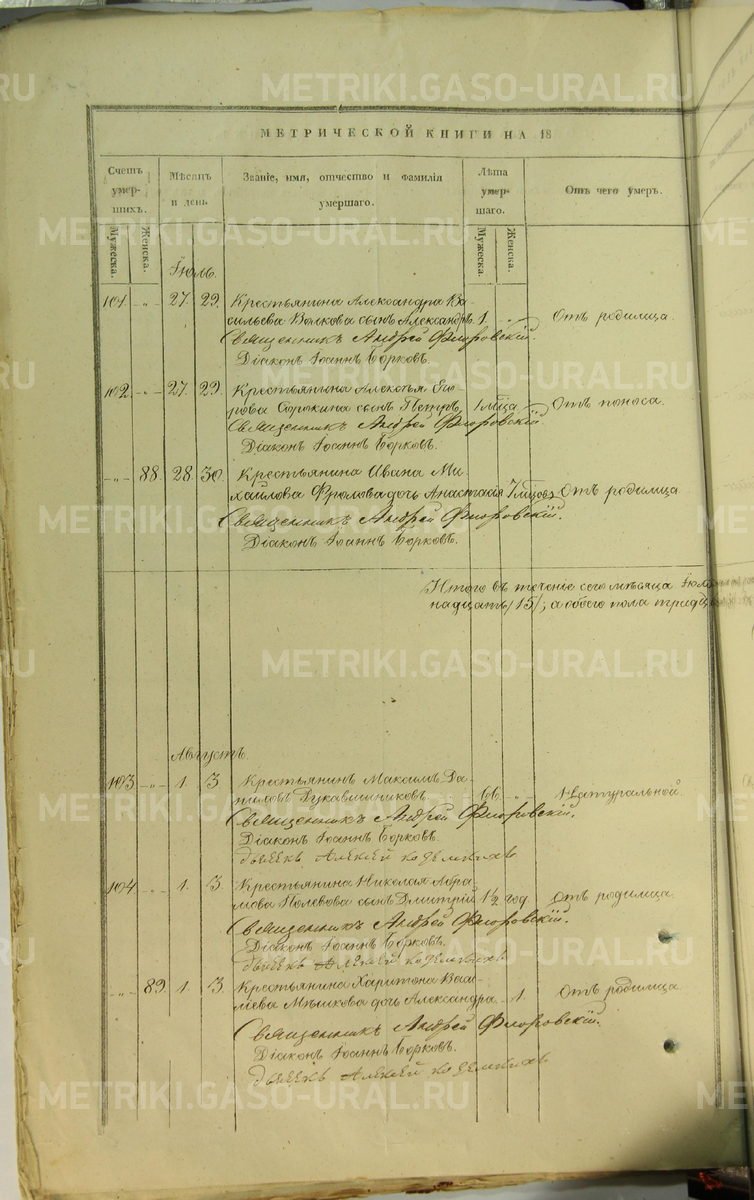 МЕТРИЧЕСКОЙ КНИГИ НА 18
Счетъ умер- шихъ.
Мужеска. Женска.
Мѣсяцъ и день.
Званіе, имя, отчество и фамилія умершаго.
Лѣта умер- шаго.
Мужеска. Женска.
Отъ чего умеръ.
Іюль.
101. -„- 27. 29. Крестьянина Александра Ва-
сильева Волкова сынъ Александръ. 1. -„- Отъ родимца.
Священникъ Андрей Флоровскій.
Діаконъ Іоаннъ Борковъ.
102. -„- 27. 29. Крестьянина Алексѣя Его-
рова Сорокина сынъ Петръ. 1 мѣсца Отъ поноса.
Священникъ Андрей Флоровскій.
Діаконъ Іоаннъ Борковъ.
-„- 88. 28. 30. Крестьянина Ивана Ми-
хайлова Фролова дочь Анастасія 7 мѣсцовъ Отъ родимца
Священникъ Андрей Флоровскій.
Діаконъ Іоаннъ Борковъ.
Итого въ теченіе сего мѣсяца Іюля
надцать /15/, а обоего пола тридц
Августъ.
103. -„- 1. 3. Крестьянинъ Максимъ Да-
ниловъ Рукавишниковъ. 66. -„- Натуральной.
Священникъ Андрей Флоровскій.
Діаконъ Іоаннъ Борковъ.
дьячекъ Алексей
104. -„- 1. 3. Крестьянина Николая Абра-
мова Полевова сынъ Дмитрій 1½ год. Отъ родимца.
Священникъ Андрей Флоровскій.
Діаконъ Іоаннъ Борковъ.
дьячекъ Алексей
-„- 89. 1. 3. Крестьянина Харитона Васи-
льева Мѣшкова дочь Александра. -„- 1. Отъ родимца.
Священникъ Андрей Флоровскій.
Діаконъ Іоаннъ Борковъ.
дьячекъ Алексей
METRIKI.GASO-URAL.RU